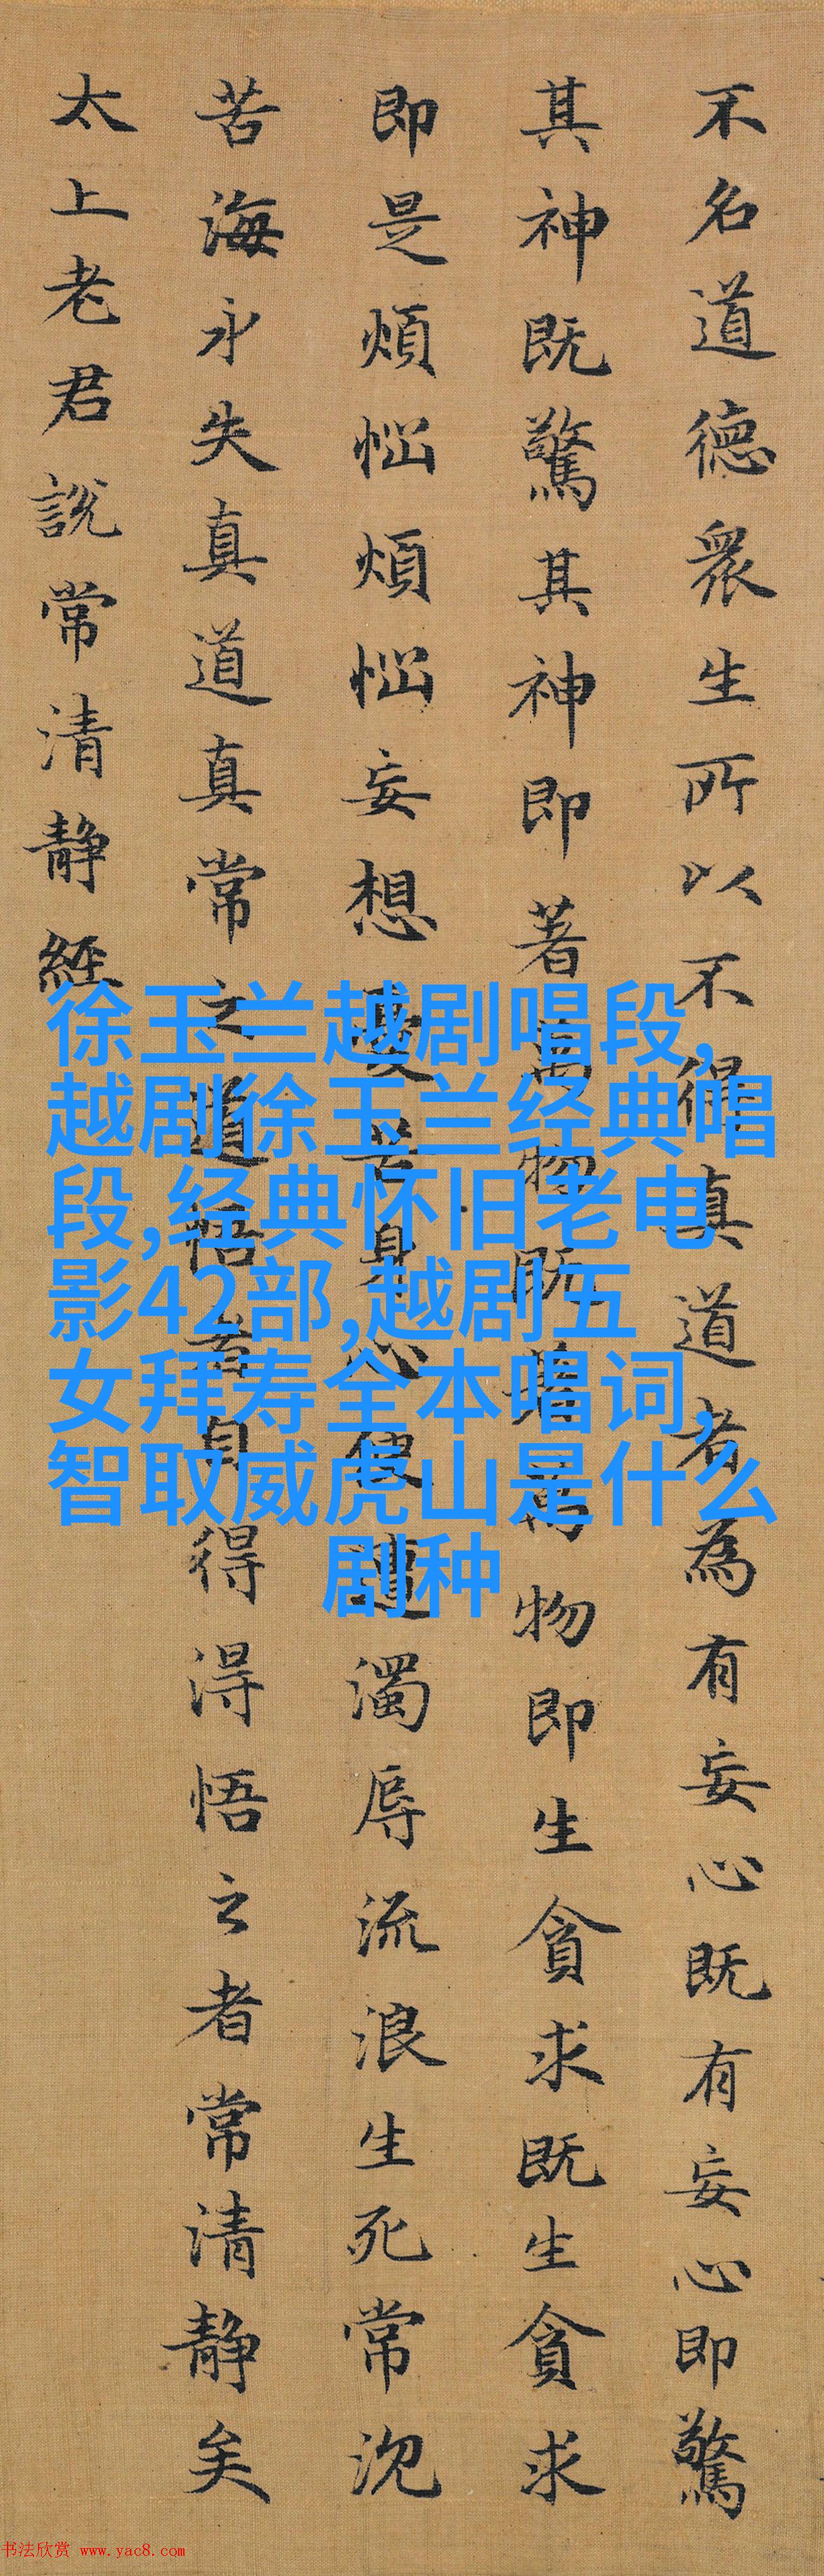 不名道德衆生所以不得真道者為有妄心既有妄心即驚
其神既驚其神即著萬物既著萬物即生貪求既生貪求
即是煩惱煩惱妄想憂苦身心便遭濁辱流浪生死常沉
苦海永失真道真常之道悟者自得得悟之者常清静矣
太上老君説常清静經
徐玉兰越剧唱段,
越剧徐玉兰经典唱
段,经典怀旧老电
影42部,越剧五
女拜寿全本唱词,
智取威虎山是什么
剧种
书法欣赏 www.yac8.com